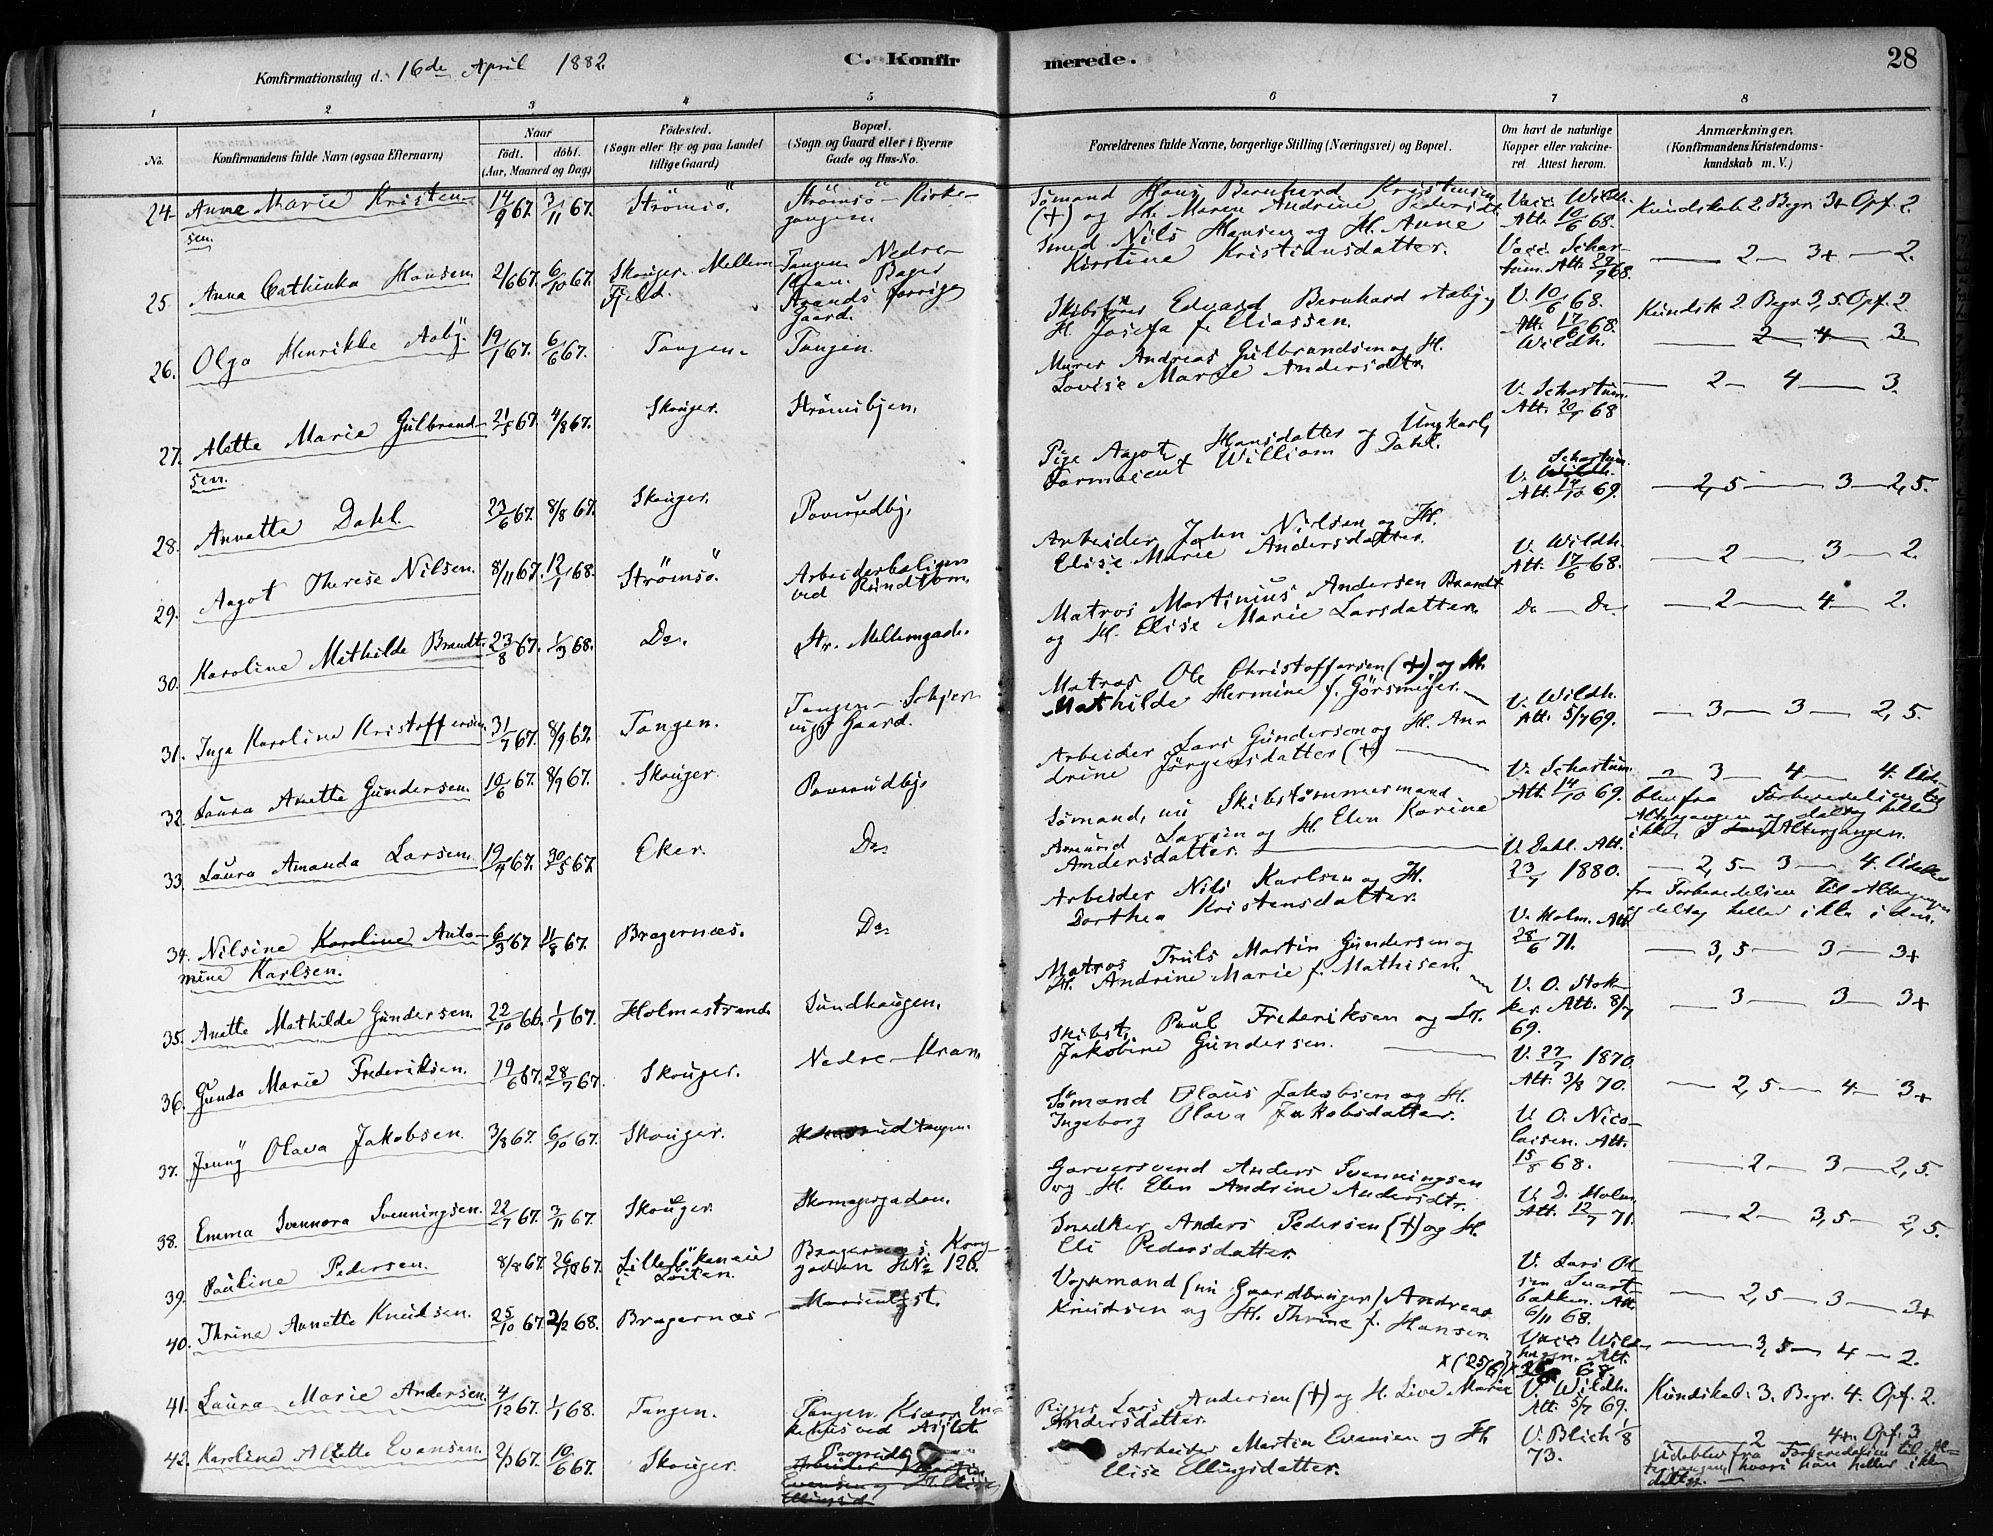 Konfirmationsdag d. 16de April 1882
C. Konfirmerede.
28
1 2 3 4 5 6 7 8
No.
Konfirmandens fulde Navn (ogsaa Efternavn)
Naar
født. døbt.
(Aar, Maaned og Dag)
Fødested.
(Sogn eller By og paa Landet
tillige Gaard)
Bopæl.
(Sogn og Gaard eller i Byerne
Gade og Hus-No.
Forældrenes fulde Navne, borgerlige Stilling (Næringsvei) og Bopæl.
Om havt de naturlige
Kopper eller vakcine-
ret. Attest herom.
Anmærkninger.
(Konfirmandens Kristendoms-
kundskab m. V.)
24. Anne Marie Kristen-
sen. 14/9 67. 3/11 67. Strömsö. Strömsö - Kirke-
gangen
Sömand Hans Bernhard Kristensen
(+) og H. Maren Andrine Pedersdt
Vacc. Wildh.
Att. 10/6 68.
Kundskab 2. Begr. 3+ Opf. 2.
25. Anna Cathinka Hansen 2/6 67. 6/10 67. Skouger. Mellem
Fjeld. Tangen Nedre
Kran. Bager
Strands forrige
Gaard.
Smed Nils Hansen og H. Anne
Kirstine Kristiansdatter.
Vacc. Schar-
tum. Att. 29/9 68.
2 3+ 2.
26. Olga Henrikke Aaby. 19/1 67. 6/6 67. Tangen. Tangen.
Skibsfører Edvard Bernhard Aaby
H. Josefa f. Eliassen.
V. 10/6 68.
Att. 17/6 68.
Wildh.
Kundsk. 2. Begr. 3,5. Opf. 2.
2 4 3
27. Alette Marie Gulbrand-
sen. 21/5 67. 4/8 67. Skouger. Strömsbyen.
Murer Andreas Gulbrandsen og H.
Lovise Marie Andersdtr.
V. Schartum.
Att. 68
2 4 3.
28. Annette Dahl. 23/6 67. 8/8 67. Skouger. Paverudby.
Pige Aagot Hansdatter og Ungkarl,
Farmaceut William Dahl.
Schartum.
V. Wildh.
Att. 14/10 69.
2,5 3 2,5.
29. Aagot Therese Nilsen. 8/11 67. 12/1 68. Strömsö. Arbeiderboligen
ved Rundtom.
Arbeider John Nilsen og H.
Elise Marie Andersdatter.
V. Wildh.
Att. 17/6 68.
2 3 2.
30. Karoline Mathilde Brandt. 23/8 67. 1/3 68. Do. Str. Mellemgade.
Matros Martinius Andersen Brandt
og H. Elise Marie Larsdatter.
Do - Do
2 4 2.
31. Inga Karoline Kristoffersen. 31/7 67. 8/9 67. Tangen. Tangen
Gaard.
Matros Ole Christoffersen (+) og H.
Mathilde Hermine f. Görsmeyer.
V. Wildh.
Att. 5/7 69.
3 3 2,5.
32. Laura Anette Gundersen. 10/6 67. 8/9 67. Skouger. Paverudby.
Arbeider Lars Gundersen og H. An-
drine Jørgensdatter (+)
V. Schartum.
Att. 14/10 69.
3 4 4. Ude-
blev fra Forberedelsen til
Altergangen og deltog heller
ikke i Altergangen.
33. Laura Amanda Larsen. 19/4 67. 30/5 67. Eker. Do.
Sömand, nu Skibstømmermand
Amund Larsen og H. Elen Karine
Andersdatter.
V. Dahl. Att.
23/1 1880.
2,5 3 4. Udeblev
fra Forberedelsen til Altergangen
og deltog heller ikke i den.
34. Nilsine Karoline Anto-
mine Karlsen. 6/3 67. 11/8 67. Bragernæs. Do.
Arbeider Nils Karlsen og H.
Dorthea Kristensdatter.
V. Holm. Att.
28/6 71.
3,5 3 3+
35. Anette Mathilde Gundersen. 22/10 66. 1/1 67. Holmestrand. Sundhaugen.
Matros Truls Martin Gundersen og
H. Andrine Marie f. Mathisen.
V. O. Stok-
ker. Att. 8/7
69.
3 3 3+
36. Gunda Marie Frederiksen. 19/6 67. 28/7 67. Skouger. Nedre-Kran
Skibst. Paul Frederiksen og H.
Jakobine Gundersen.
V. 27/7 1870.
Att. 3/8 70.
2,5 4 3+
37. Jenny Olava Jakobsen. 3/8 67. 6/10 67. Skouger.
Sömand Olaus Jakobsen og H.
Ingeborg Olava Jakobsdatter.
V. O. Nico-
laisen. Att.
15/8 68.
2 3 2,5.
38. Emma Svennora Svenningsen. 22/7 67. 3/11 67. Skouger. Skomagergaden.
Garversvend Anders Svenningsen
og H. Elen Andrine Andersdtr.
V. D. Holm.
Att. 12/7 71.
2 3,5 2,5.
39. Pauline Pedersen. 8/8 67. 67. Lillelökeneie
i Löiten. Bragernæs. Kon-
gaden H.No. 126.
Snedker Anders Pedersen (+) og H.
Eli Pedersdatter.
V. Lars Ol-
sen Svart-
bakken. Att.
6/11 68.
2,5 3 3+
40. Thrine Annette Knudsen. 25/10 67. 2/2 68. Bragernæs. Marienlyst.
Vognmand (nu Gaardbruger) Andreas
Knudsen og H. Thrine f. Hansen
Vacc. Wild-
hagen. Att.
68.
3,5 4 2.
41. Laura Marie Andersen. 4/12 67. 1/1 68. Tangen. Tangen. En-
kehus ved Asylet
Lars Andersen (+) og H. Live Marie
Andersdatter.
V. Wildh.
Att. 5/7 69.
Kundskab. 3. Begr. 4. Opf. 2.
42. Karoline Alette Evensen. 2/3 67. 10/6 67. Skouger.
Arbeider Martin Evensen og H.
Elise Ellingsdatter.
V. Blich
73.
2 4+ Opf. 3
Udeblev fra Forberedelsen til Al-
tergangen, hvori hun heller ikke
deltog.